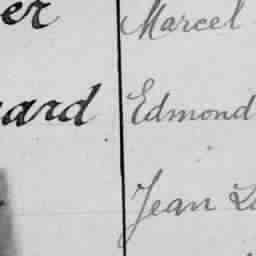 er Marcel
ard Edmond
Jean